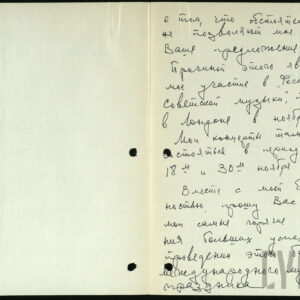 о том, что обстоятел
не позволяют мне
Ваше предложение
Причиной этого яв
мое участие в „Фест
Советской музыки",
в Лондоне в ноябр
Мои концерты там
состояться в
18го и 30го ноября
Вместе с моей б
ностью, прошу Вас
мои самые горячие
ния больших успе
проведении этого б
международного му
праздника